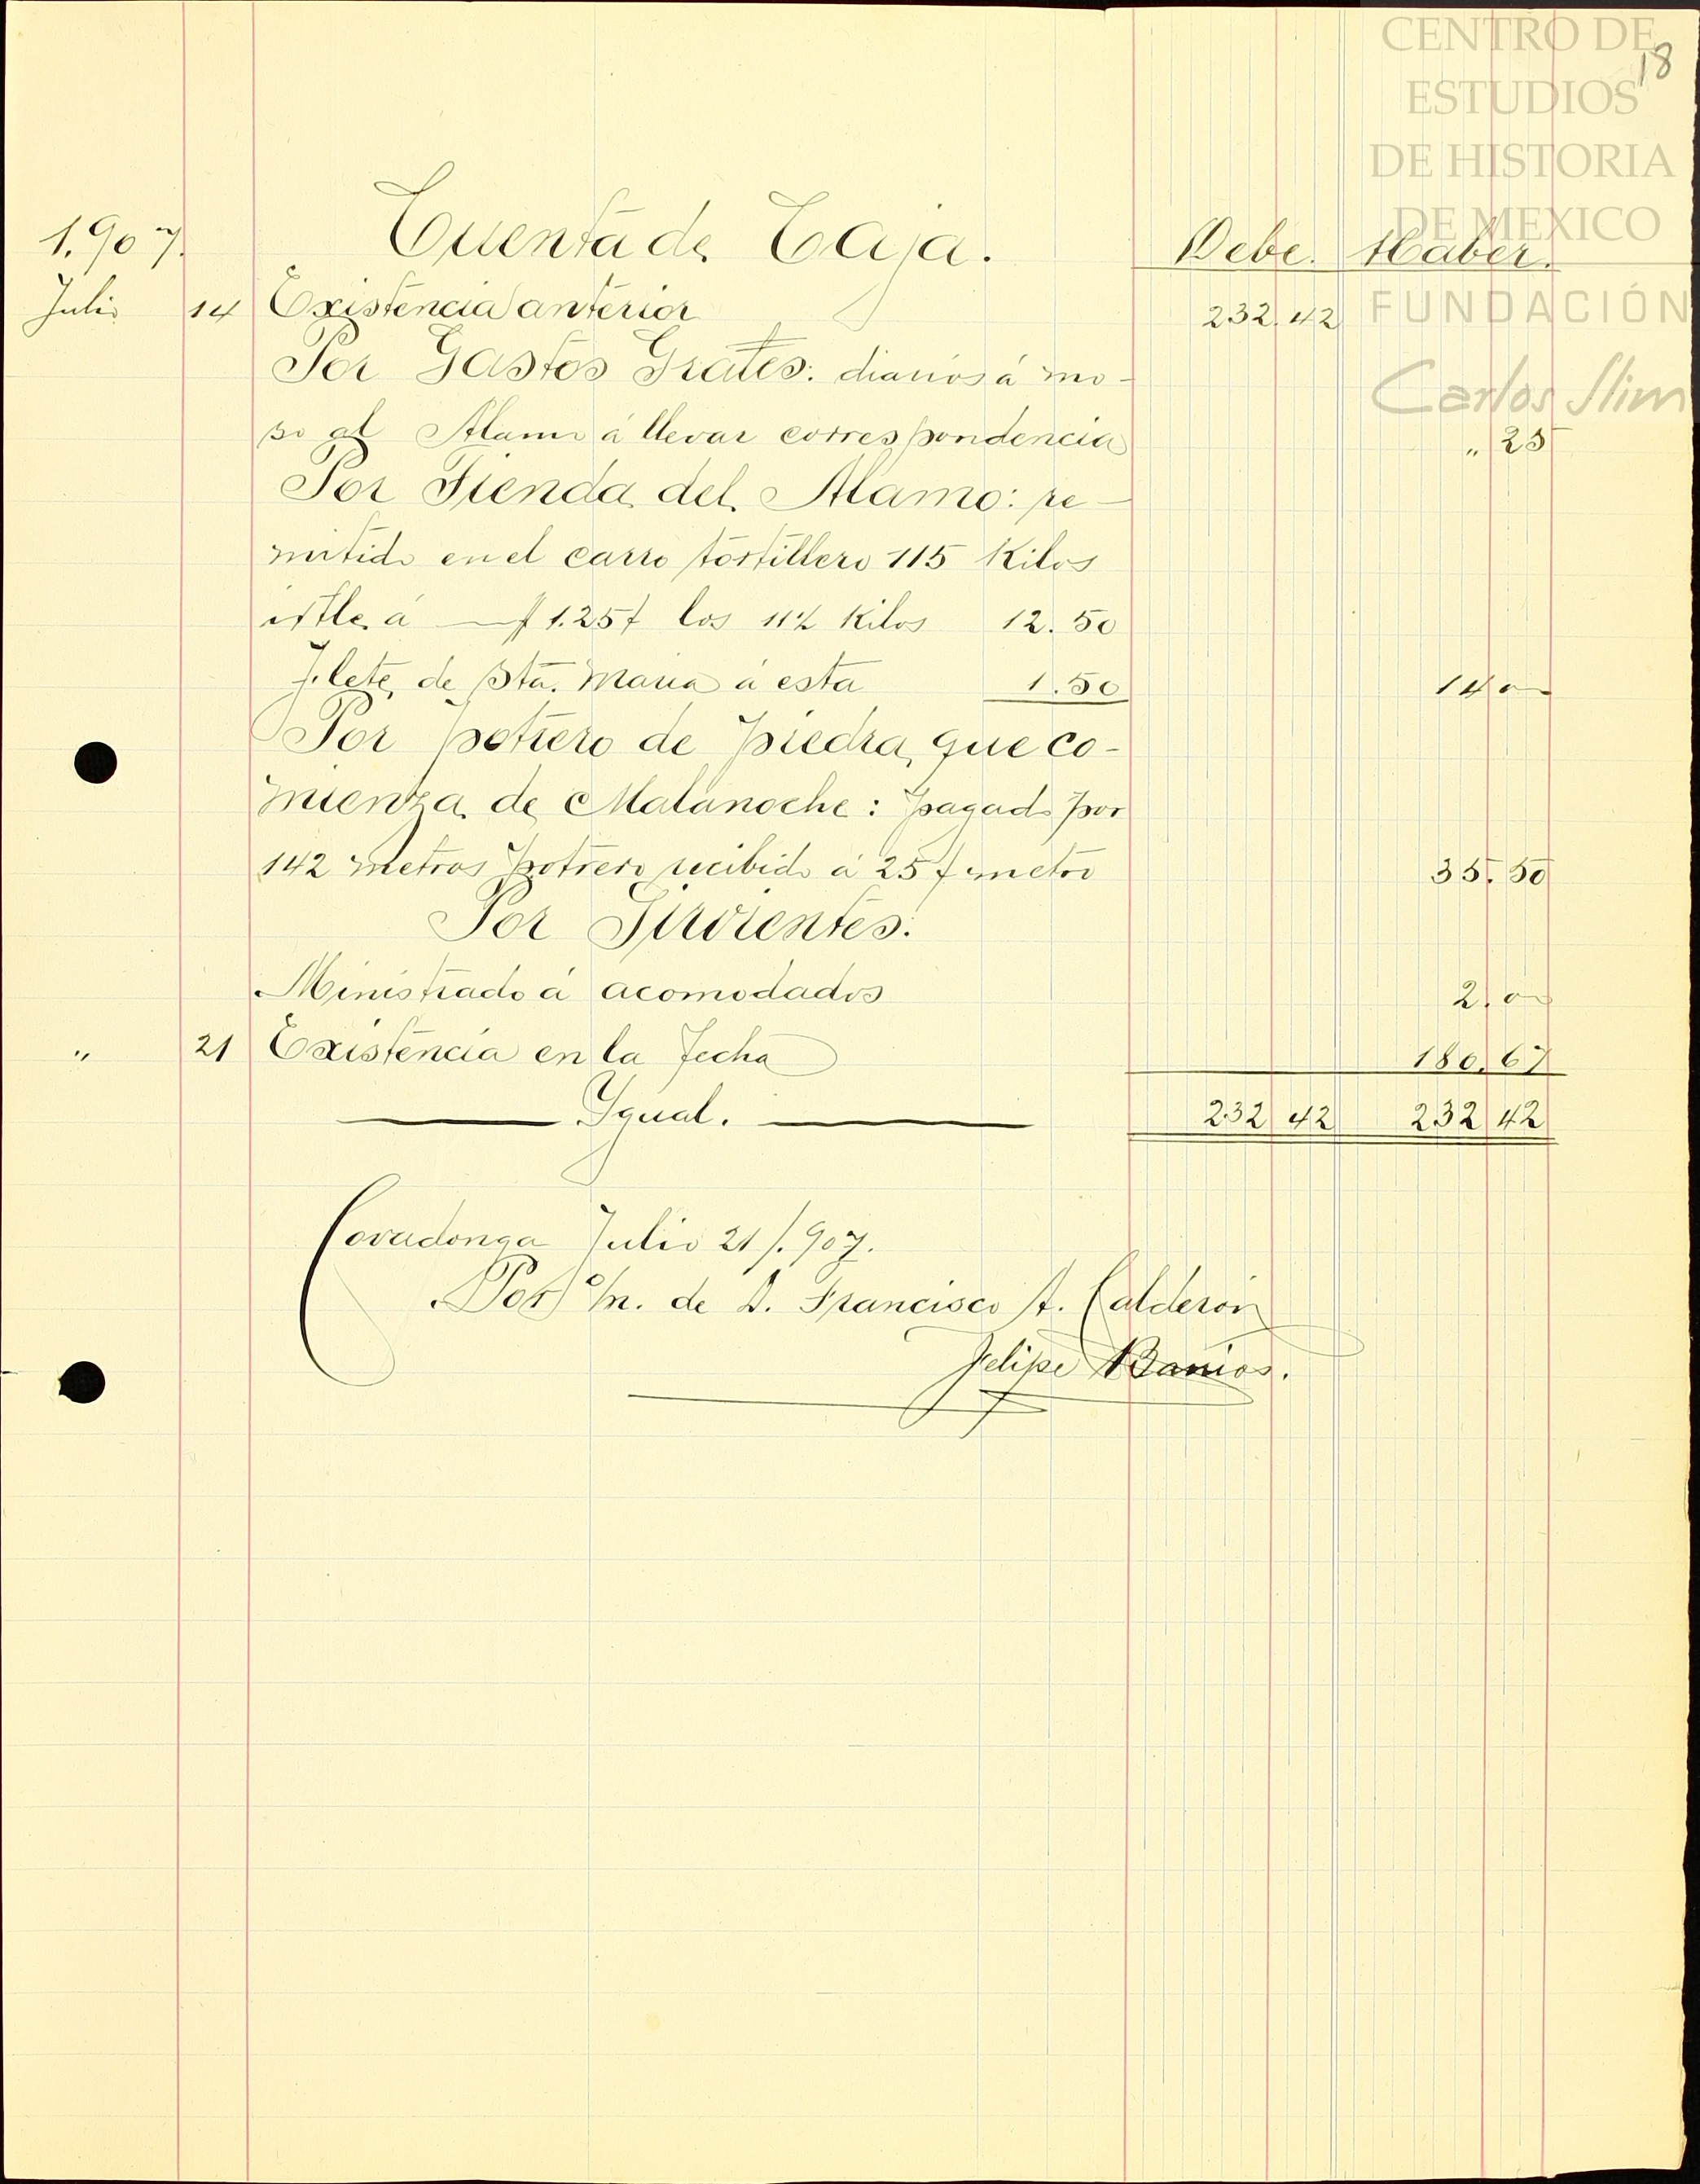 CENTRO DE
ESTUDIOS
DE HISTORIA
DE MEXICO
FUNDACIÓN
Carlos Slim
18
1.907. Cuenta de Caja. Debe. Haber.
Julio 14 Existencia anterior 232.42
Por Gastos Grales: diarios á mo-
so al Alamo á llevar correspondencia " 25
Por Tienda del Alamo: re-
mitido en el carro tortillero 115 Kilos
istle á $1.25¢ los 11½ Kilos 12.50
Flete de Sta. Maria á esta 1.50 14
Por potrero de piedra, que co-
mienza de Malanoche: pagado por
142 metros potrero recibido á 25¢ metro 35.50
Por Sirvientes:
Ministrado á acomodados 2
" 21 Existencia en la fecha 180.67
Igual. 232 42 232 42
Covadonga Julio 21/.907.
Por o/n. de D. Francisco A. Calderón
Felipe Barrios.